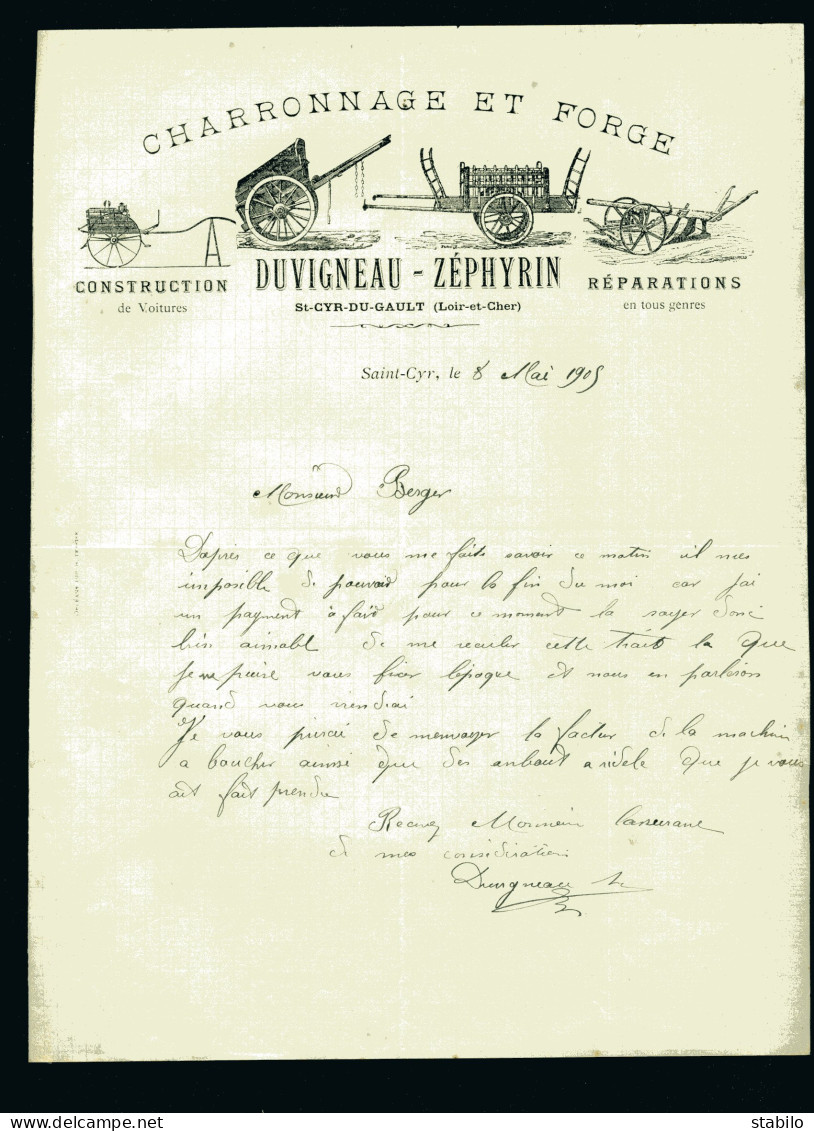 CHARRONNAGE ET FORGE
CONSTRUCTION
de Voitures
DUVIGNEAU - ZÉPHYRIN
St-CYR-DU-GAULT (Loir-et-Cher)
RÉPARATIONS
en tous genres
Saint-Cyr, le 8 Mai 1905
Monsieur Berger
Dapres ce que vous me faits savoir ce matin il mes
imposible de pouvoir pour la fin du moi car jai
un payment a fair pour ce moment la soyer donc
bien aimable de me reculer cette traite la que
je ne puise vous fixer lepoque et nous en parleron
quand vous viendrai
Je vous de menvoyer la factur de la machin
a boucher ainsi que des anbaut a ridele que je vous
ait fait prendre
Recevez Monsieur lassurance
de mes considiration
Duvigneau Z